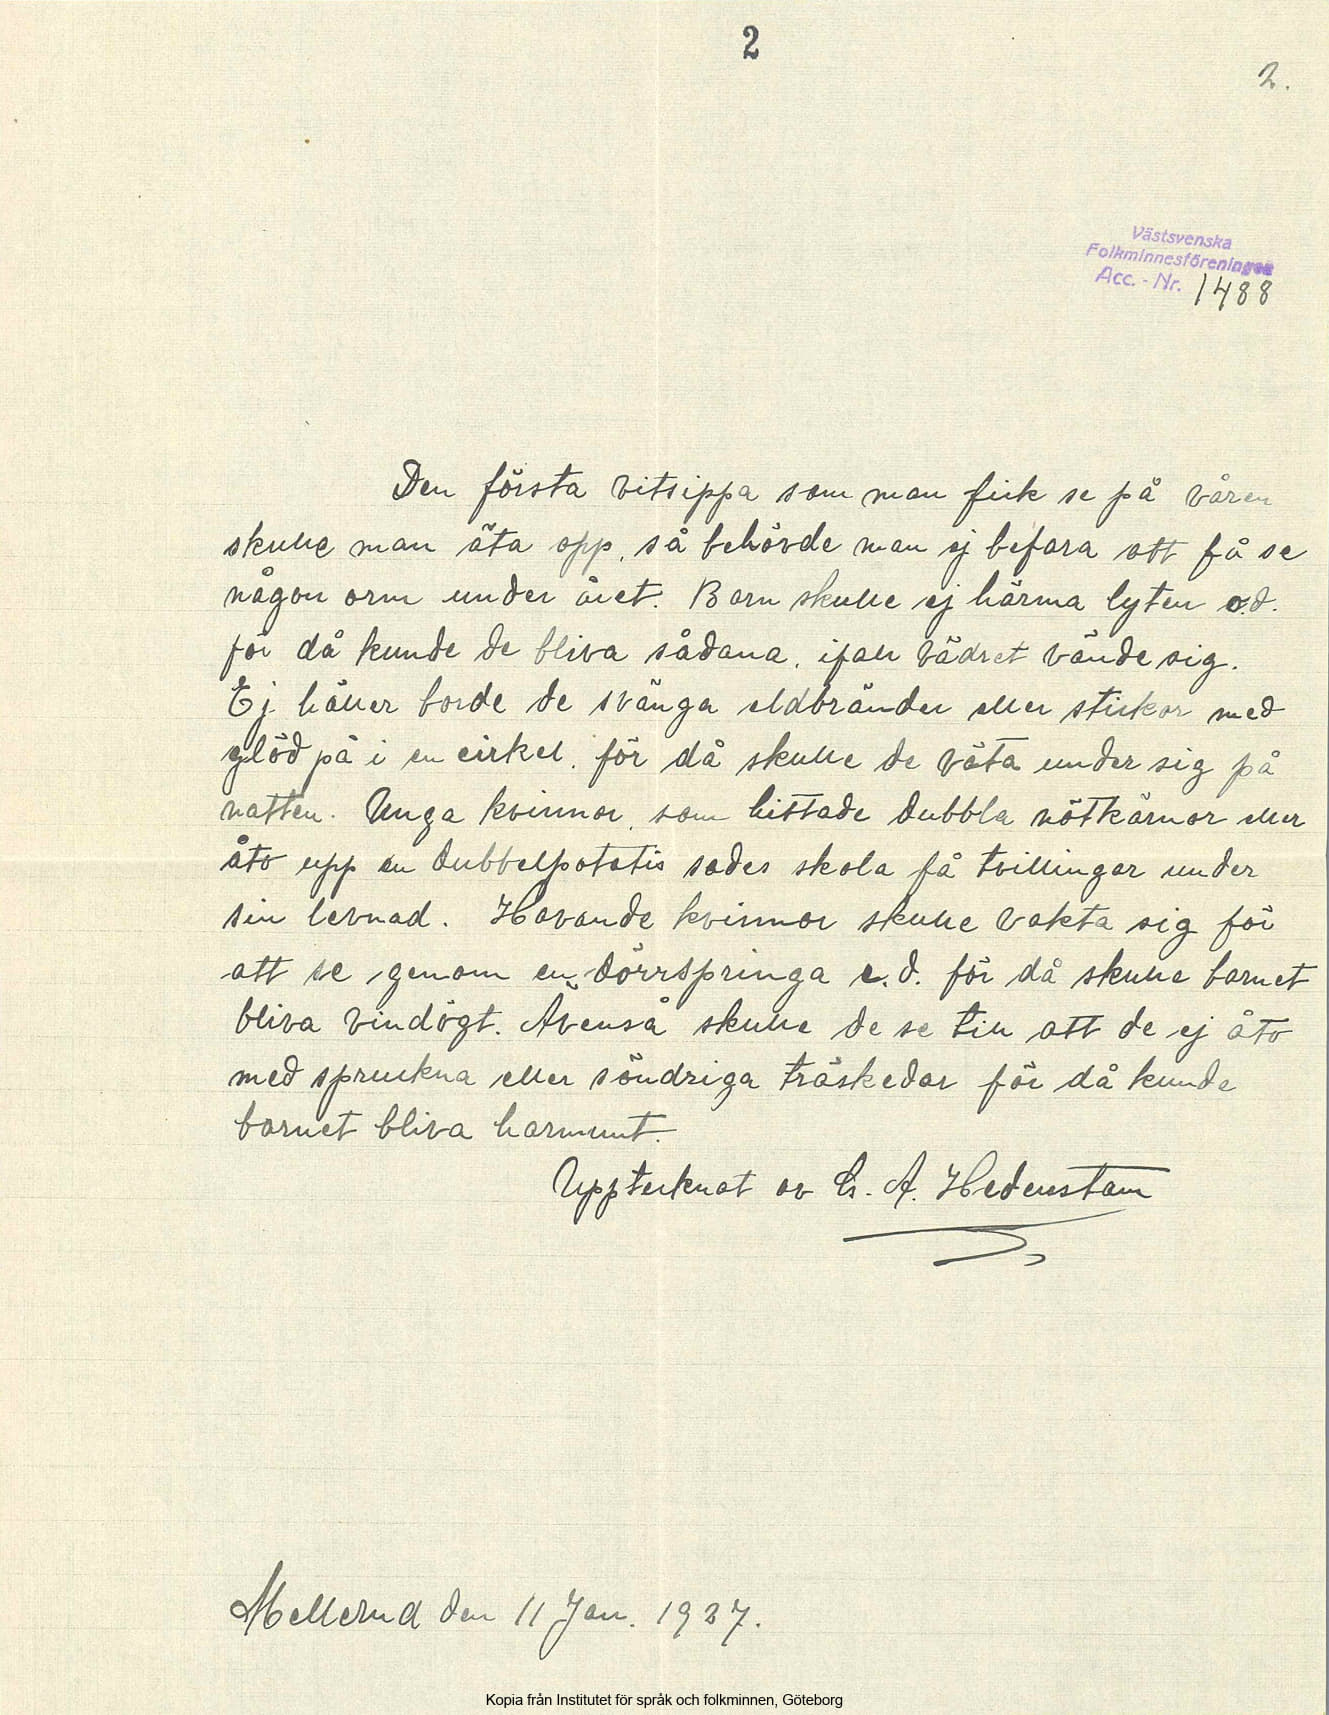 2
2.
Västsvenska
Folkminnesföreningen
Acc. - Nr. 1488
Den första vitsippa som man fick se på våren
skulle man äta opp, så behövde man ej befara att få se
någon orm under året. Barn skulle ej härma lyten o.d.
för då kunde de bliva sådana, ifall vädret vände sig.
Ej häller borde de svänga eldbränder eller stickor med
glöd på i en cirkel, för då skulle de väta under sig på
natten. Unga kvinnor, som hittade dubbla nötkärnor eller
åto upp en dubbelpotatis sades skola få tvillingar under
sin levnad. Havande kvinnor skulle vakta sig för
att se genom en dörrspringa e.d. för då skulle barnet
bliva vindögt. Ävenså skulle de se till att de ej åto
med spruckna eller söndriga träskedar för då kunde
barnet bliva harmunt.
Upptecknat av G. A. Hedenstam
Mellerud den 11 Jan. 1927.
Kopia från Institutet för språk och folkminnen, Göteborg